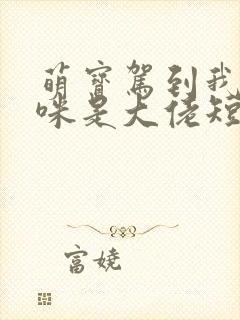 萌寳駕到我
咪是大佬短
富娆